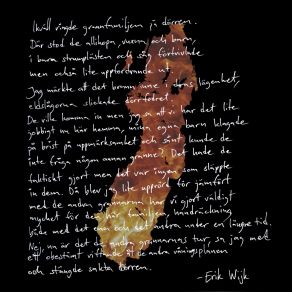 Ikväll ringde grannfamiljen på dörren.
Där stod de allihopa, vuxna och barn,
i bara strumplästen och såg förtvivlade
men också lite uppfordrande ut.
Jag märkte att det brann inne i deras lägenhet,
eldslågorna slickade dörrfodret.
De ville komma in men jag sa att vi har det lite
jobbigt nu här hemma, mina egna barn klagade
på brist på uppmärksamhet och sånt kunde de
inte fråga någon annan granne? Det hade de
faktiskt gjort men det var ingen som släppte
in dem. Då blev jag lite upprörd för jämfört
med de andra grannarna har vi gjort väldigt
mycket för den här familjen, handräckning
både med det ena och det andra under en längre tid.
Nej, nu är det de andra grannarnas tur, sa jag med
ett obestämt viftande åt de andra våningsplanen
och stängde sakta dörren.
–Erik Wijk